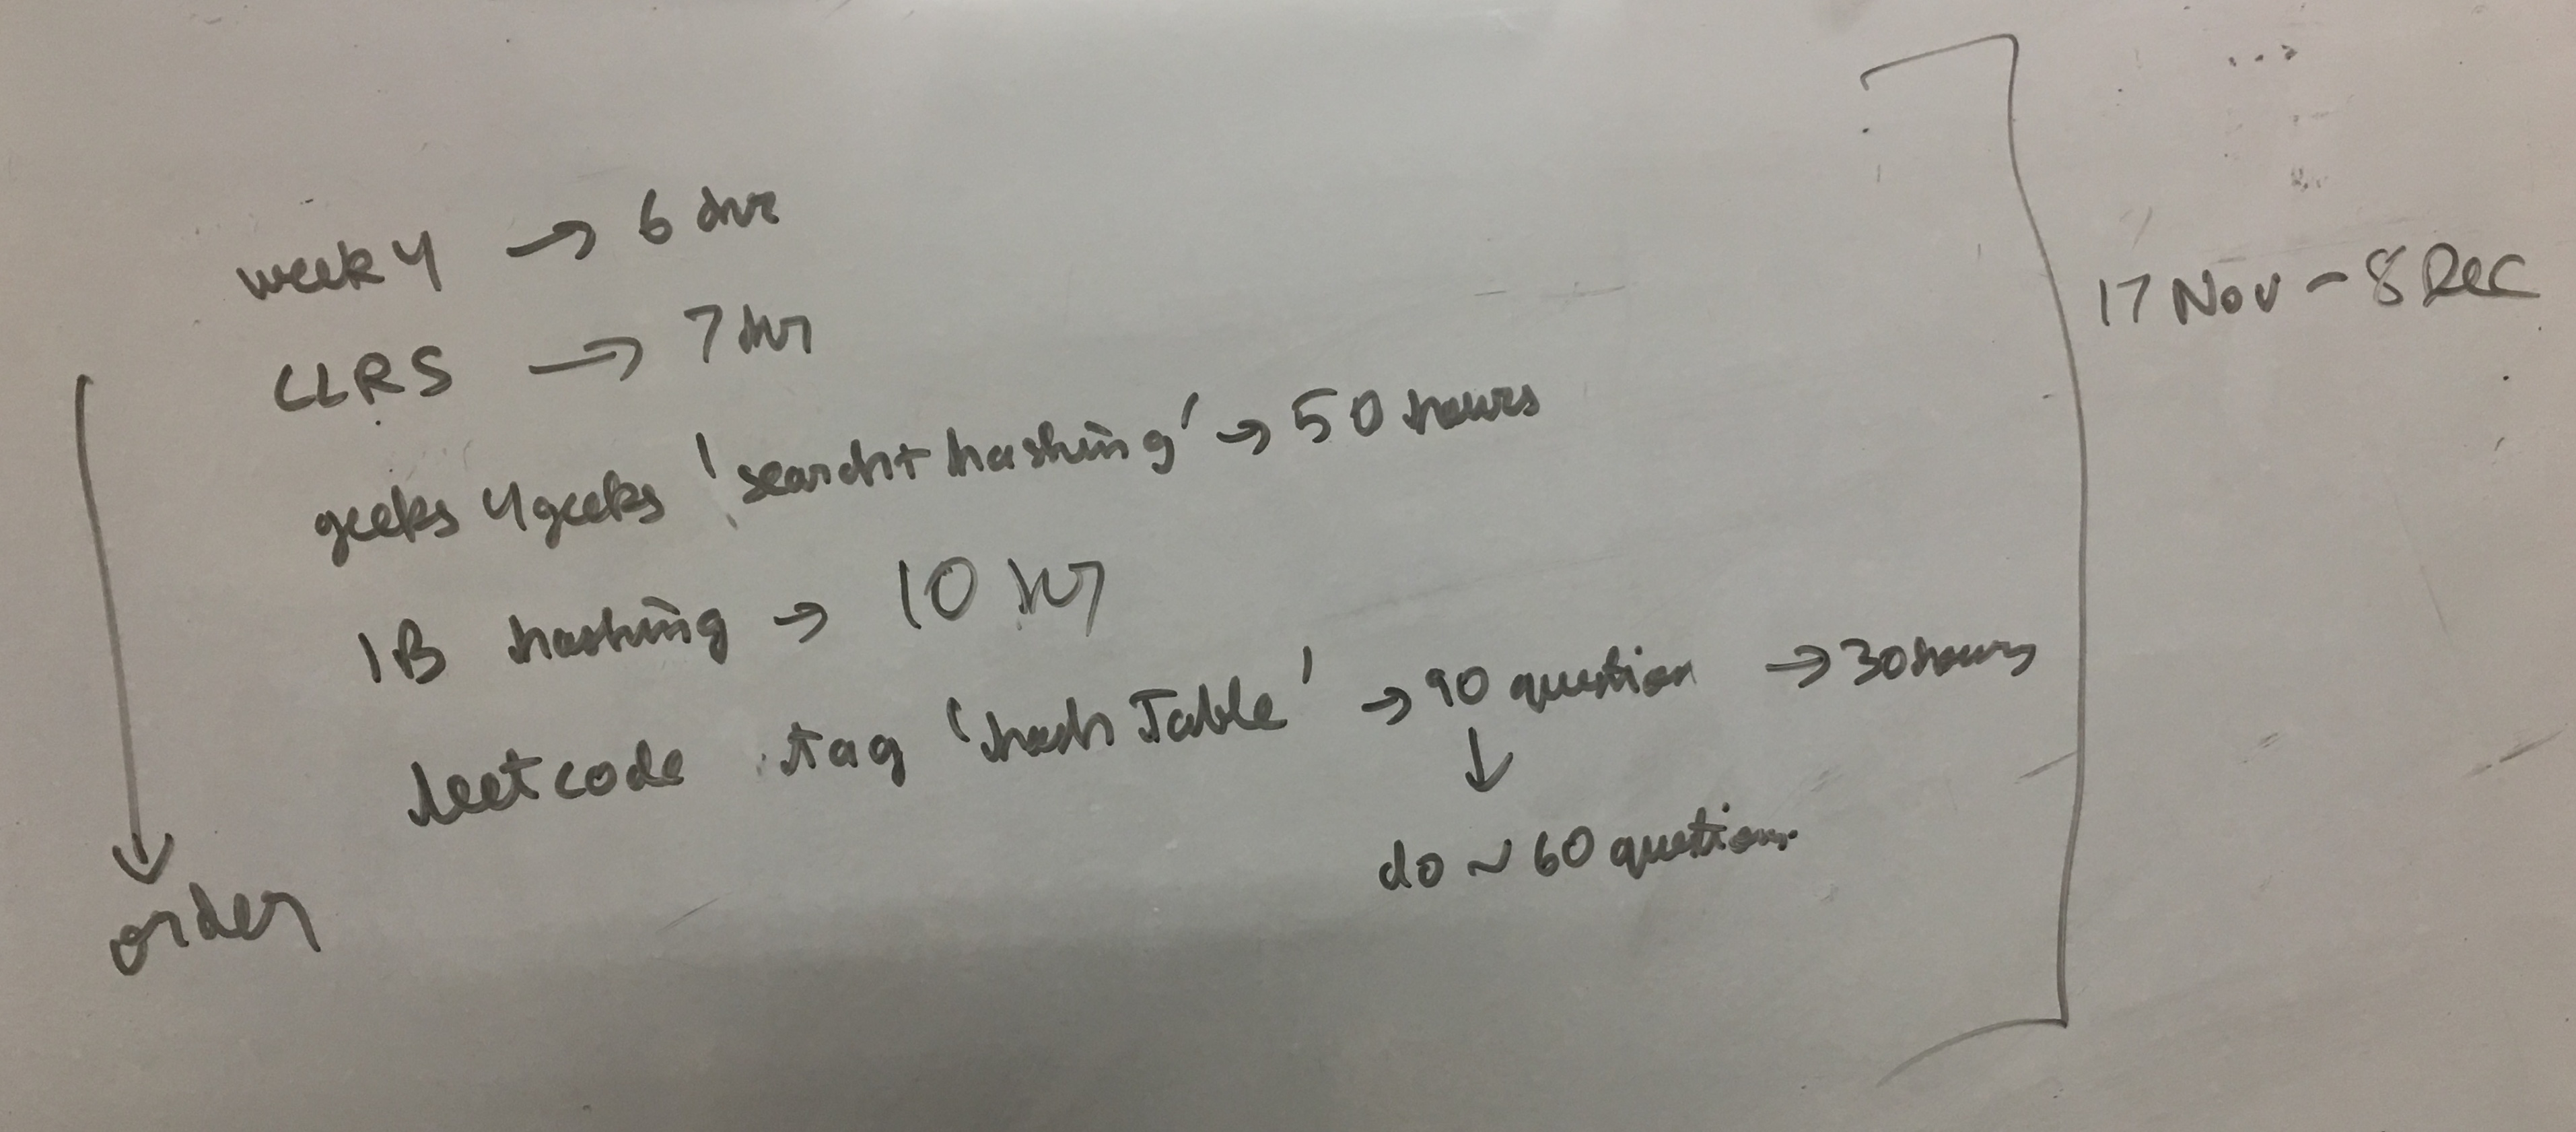 week 4 → 6 hr
CLRS → 7 hr
geeks 4geeks 'search+hashing' → 50 hours
IB hashing → 10 hr
leetcode tag 'hash Table' → 90 question → 30 hours
↓
do ~ 60 question.
order
17 Nov - 8 Dec